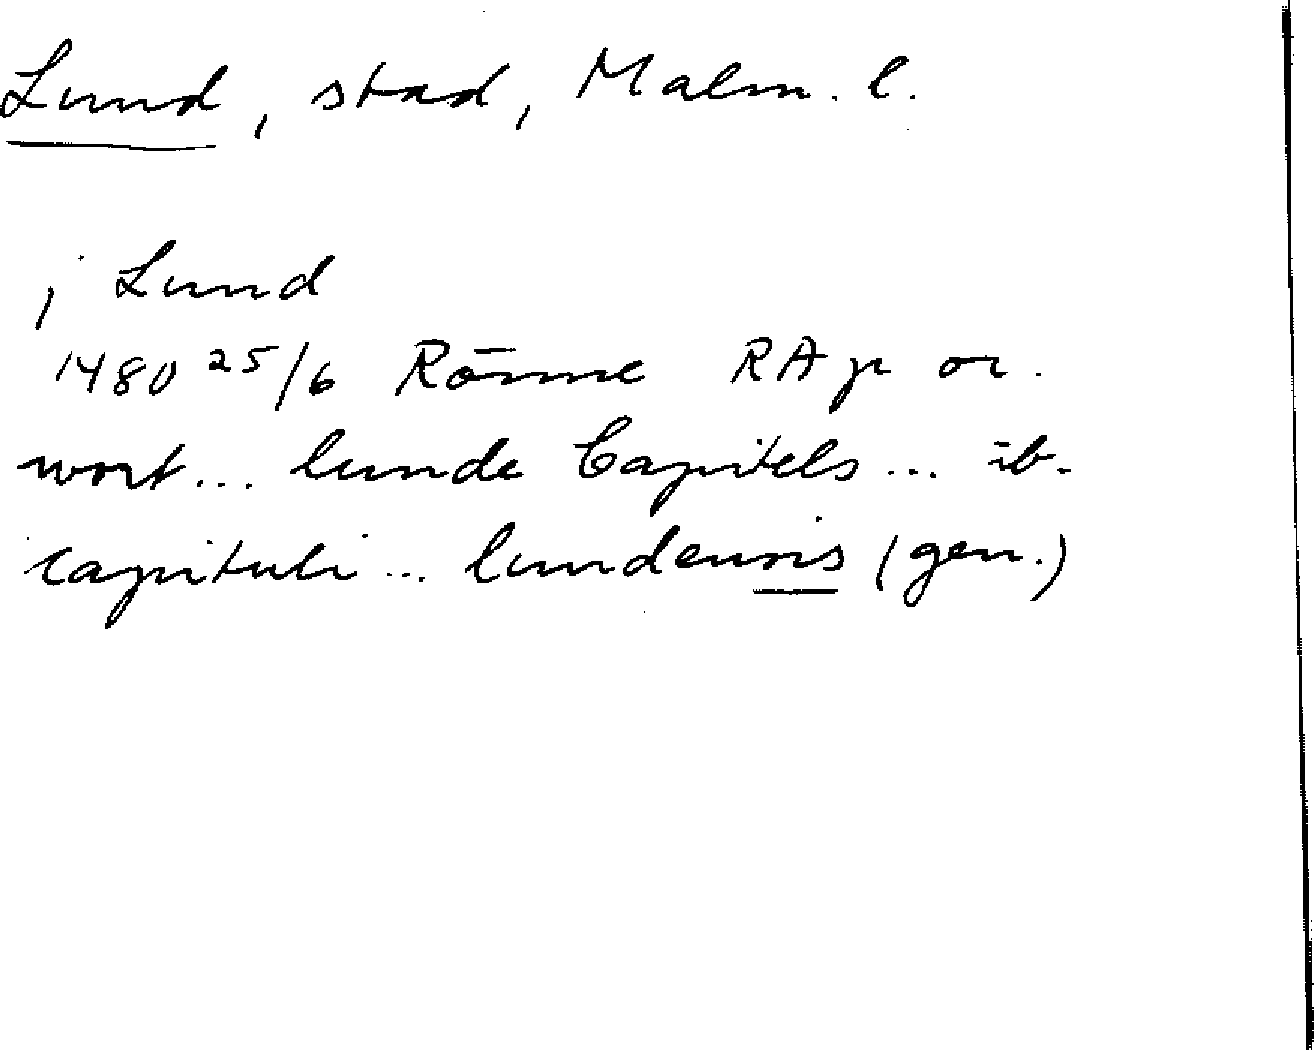 Lund, stad, Malm. l.
j Lund
1480 25/6 Rönne RA p or.
wort... lunde Capitels... ib.
capituli... lundensis (gen.)